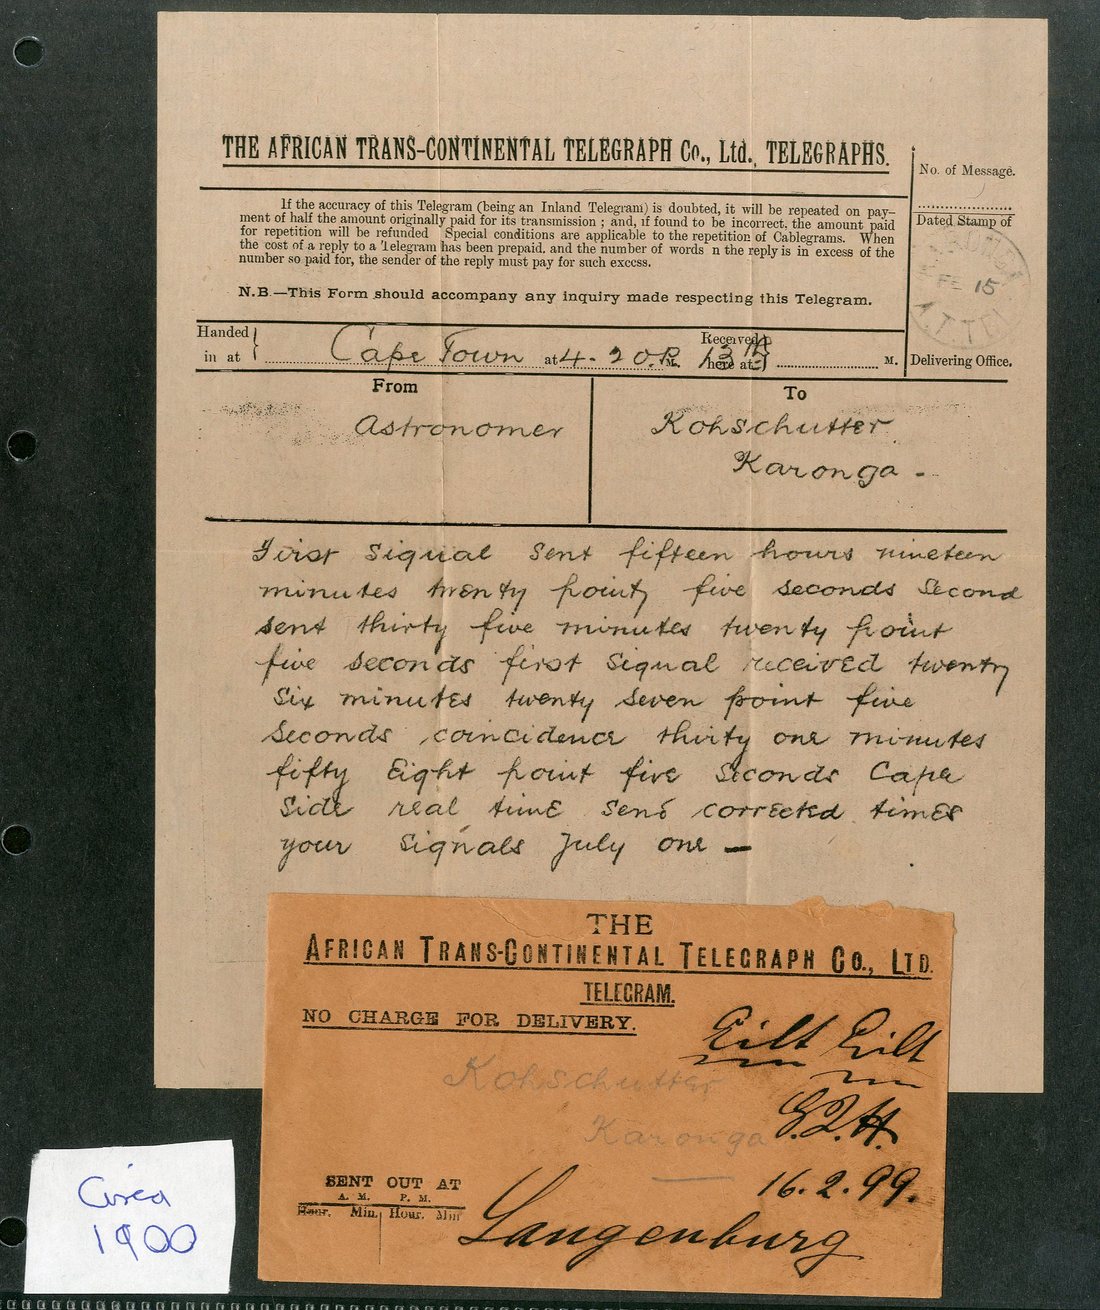 THE AFRICAN TRANS-CONTINENTAL TELEGRAPH Co., Ltd., TELEGRAPHS.
No. of Message.
If the accuracy of this Telegram (being an Inland Telegram) is doubted, it will be repeated on pay-
ment of half the amount originally paid for its transmission ; and, if found to be incorrect, the amount paid
for repetition will be refunded Special conditions are applicable to the repetition of Cablegrams. When
the cost of a reply to a Telegram has been prepaid, and the number of words n the reply is in excess of the
number so paid for, the sender of the reply must pay for such excess.
N.B.—This Form should accompany any inquiry made respecting this Telegram.
Dated Stamp of
FE 15
Delivering Office.
Handed in at } Cape Town at 4.20 P. M. 13th Received here at } M.
From
To
Astronomer
Kohschutter
Karonga -
First Signal sent fifteen hours nineteen
minutes twenty point five seconds Second
sent thirty five minutes twenty point
five seconds first Signal received twenty
Six minutes twenty Seven point five
Seconds coincidence thirty one minutes
fifty Eight point five Seconds Cape
Side real time Send corrected times
your Signals July one —
THE
AFRICAN TRANS-CONTINENTAL TELEGRAPH CO., LTD.
TELEGRAM.
NO CHARGE FOR DELIVERY.
Eilt Eilt
Kohschutter
Karonga
16.2.99.
SENT OUT AT
A. M. P. M.
Hour. Min. Hour. Min
Langenburg
Circa
1900